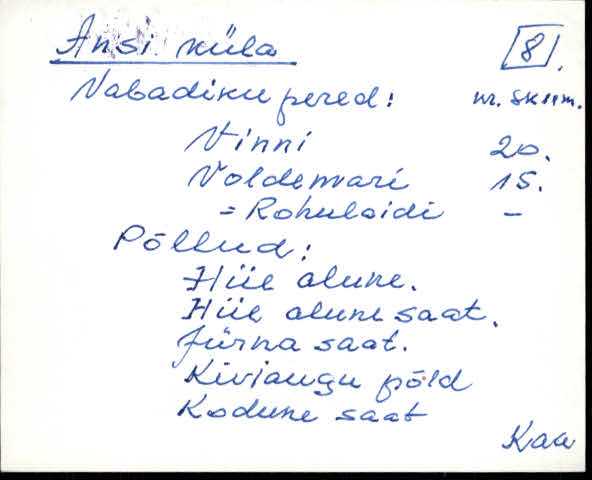 Ansi küla [8].
Vabadiku pered: nr. skeem.
Vinni 20.
Voldemari 15.
= Rohulaidi –
Põllud:
Hiie alune.
Hiie alune saat.
Jürna saat.
Kiviaugu põld
Kodune saat
Kaa